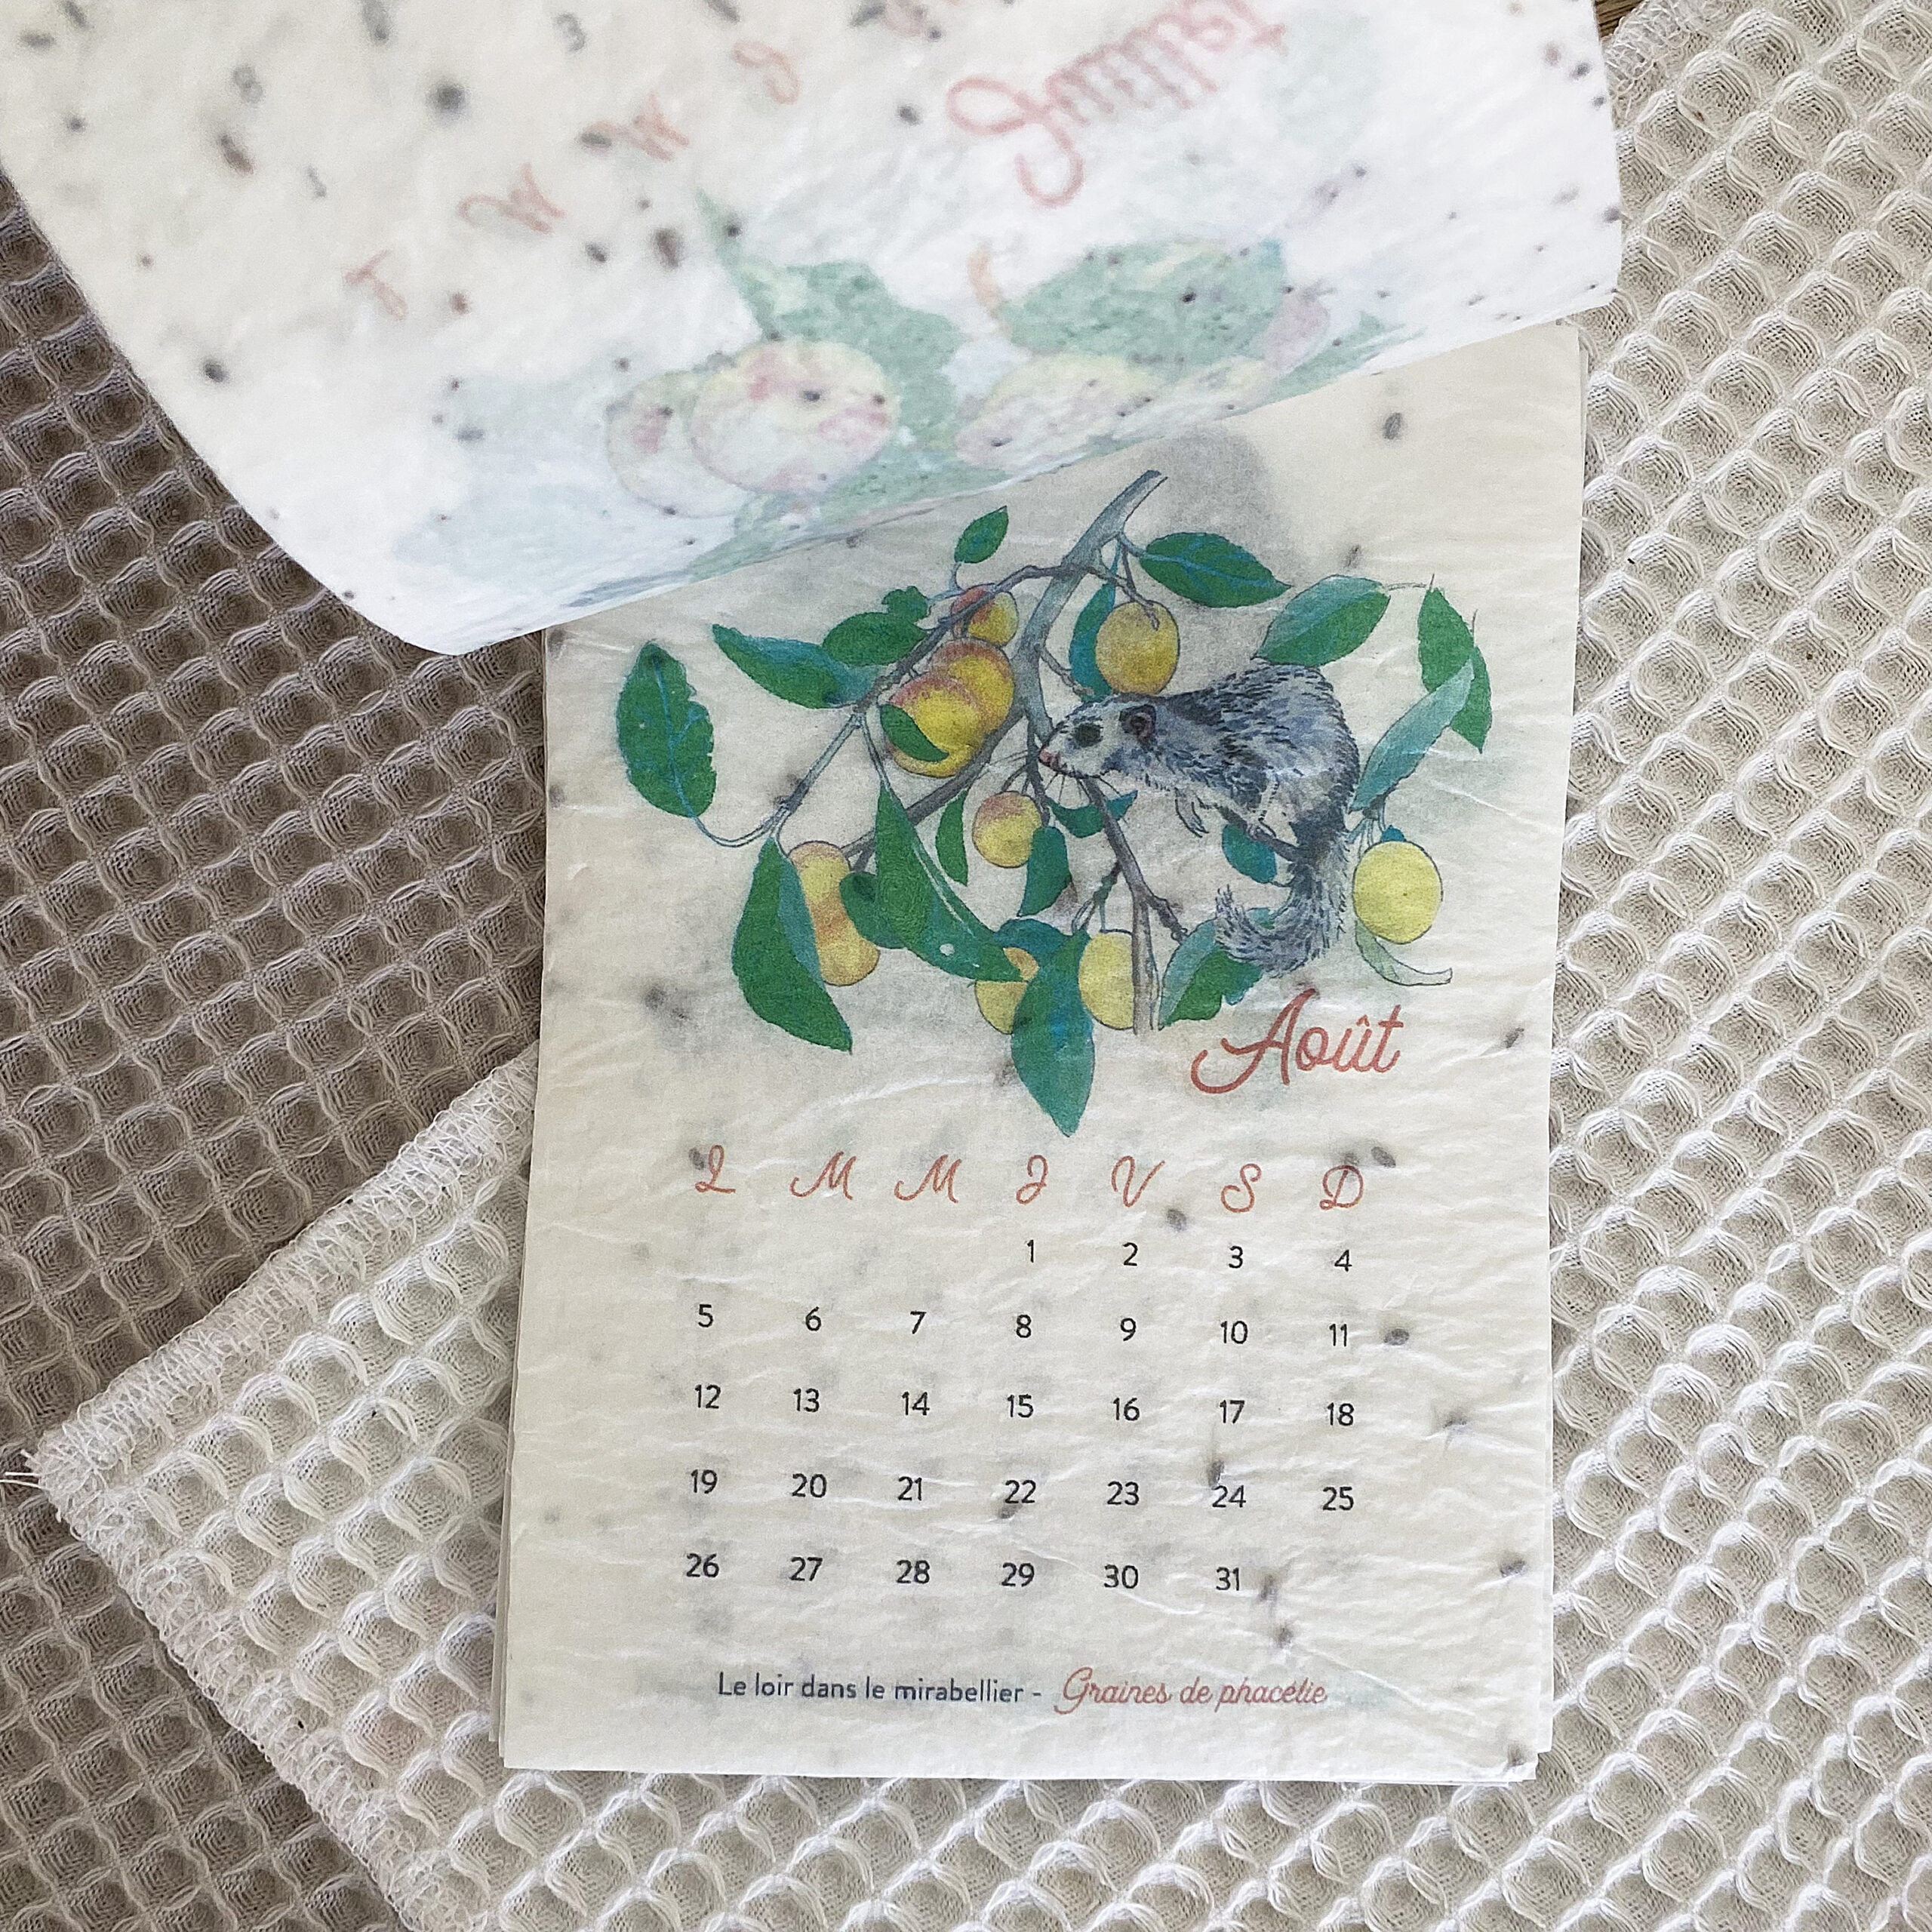 Juillet
Août
L M M J V S D
1 2 3 4
5 6 7 8 9 10 11
12 13 14 15 16 17 18
19 20 21 22 23 24 25
26 27 28 29 30 31
Le loir dans le mirabellier - Graines de phacélie